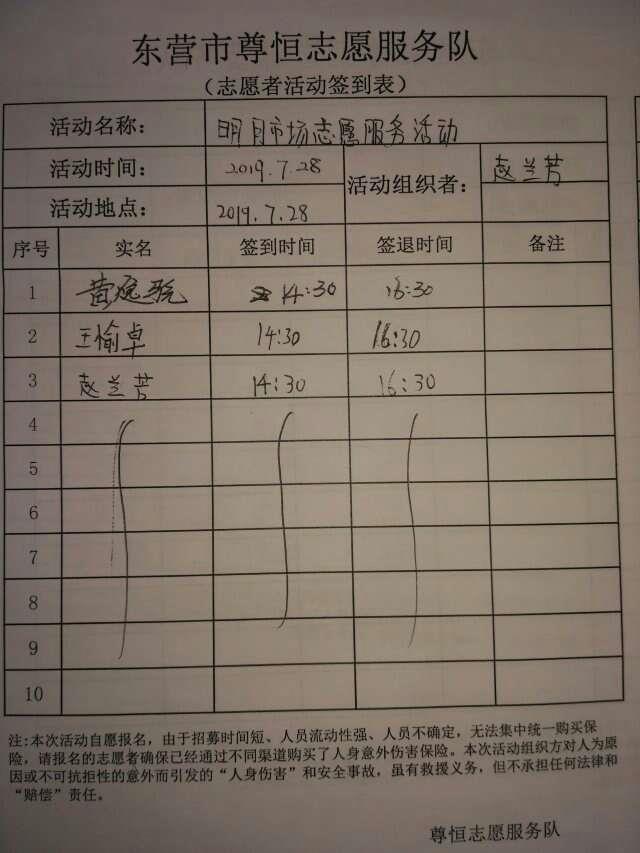 东营市尊恒志愿服务队
（志愿者活动签到表）
活动名称： 明月市场志愿服务活动
活动时间： 2019.7.28 活动组织者： 赵兰芳
活动地点： 2019.7.28
序号 实名 签到时间 签退时间 备注
1 黄 14:30 16:30
2 王愉卓 14:30 16:30
3 赵兰芳 14:30 16:30
4
5
6
7
8
9
10
注:本次活动自愿报名，由于招募时间短、人员流动性强、人员不确定，无法集中统一购买保
险，请报名的志愿者确保已经通过不同渠道购买了人身意外伤害保险。本次活动组织方对人为原
因或不可抗拒性的意外而引发的“人身伤害”和安全事故，虽有救援义务，但不承担任何法律和
“赔偿”责任。
尊恒志愿服务队